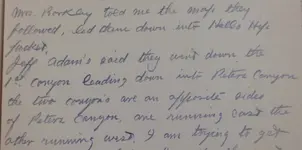 Mrs. Rockley told me the maps they
followed, led them down into Halls Hole
Jeff Adams said they went down the
1st canyon leading down into Petroe Canyon
the two canyon's are on apposite sides
of Petroe Canyon, one running east the
other running west. I am trying to get